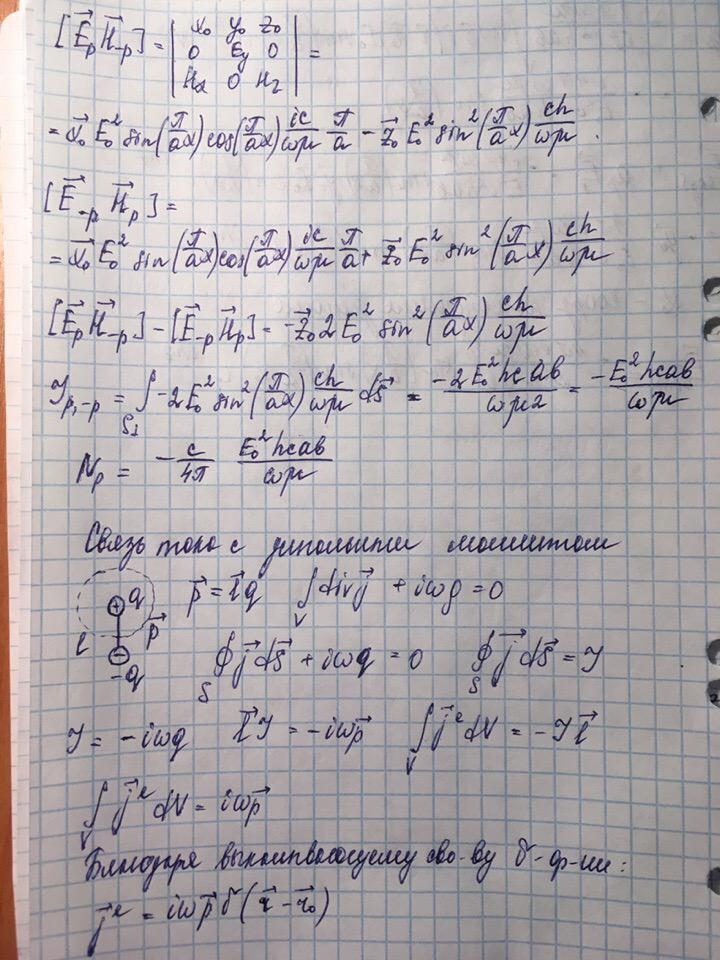 [E⃗p H⃗-p] = | x₀ y₀ z₀ |
| 0 Ey 0 | =
| Hx 0 Hz |
= x⃗₀ E₀² sin(π/a x) cos(π/a x) ic/ωμ π/a − z⃗₀ E₀² sin²(π/a x) ch/ωμ .
[E⃗-p H⃗p] =
= x⃗₀ E₀² sin(π/a x) cos(π/a x) ic/ωμ π/a + z⃗₀ E₀² sin²(π/a x) ch/ωμ
[E⃗p H⃗-p] − [E⃗-p H⃗p] = −z⃗₀ 2E₀² sin²(π/a x) ch/ωμ
𝒥p,-p = ∫S⊥ −2E₀² sin²(π/a x) ch/ωμ ds⃗ = −2E₀² hc ab/ωμ2 = −E₀² hcab/ωμ
Np = −c/4π E₀² hcab/ωμ
Связь тока с дипольным моментом
⊕ q p⃗ = l⃗q ∫V div j⃗ + iωρ = 0
l p⃗
⊖ -q ∮S j⃗ ds⃗ + iωq = 0 ∮S j⃗ ds⃗ = 𝒥
𝒥 = −iωq l⃗𝒥 = −iωp⃗ ∫V j⃗ᵉ dV = −𝒥l⃗
∫V j⃗ᵉ dV = iωp⃗
Благодаря выкалывающему сво-ву δ-ф-ии:
j⃗ᵉ = iωp⃗ δ(r⃗ − r⃗₀)